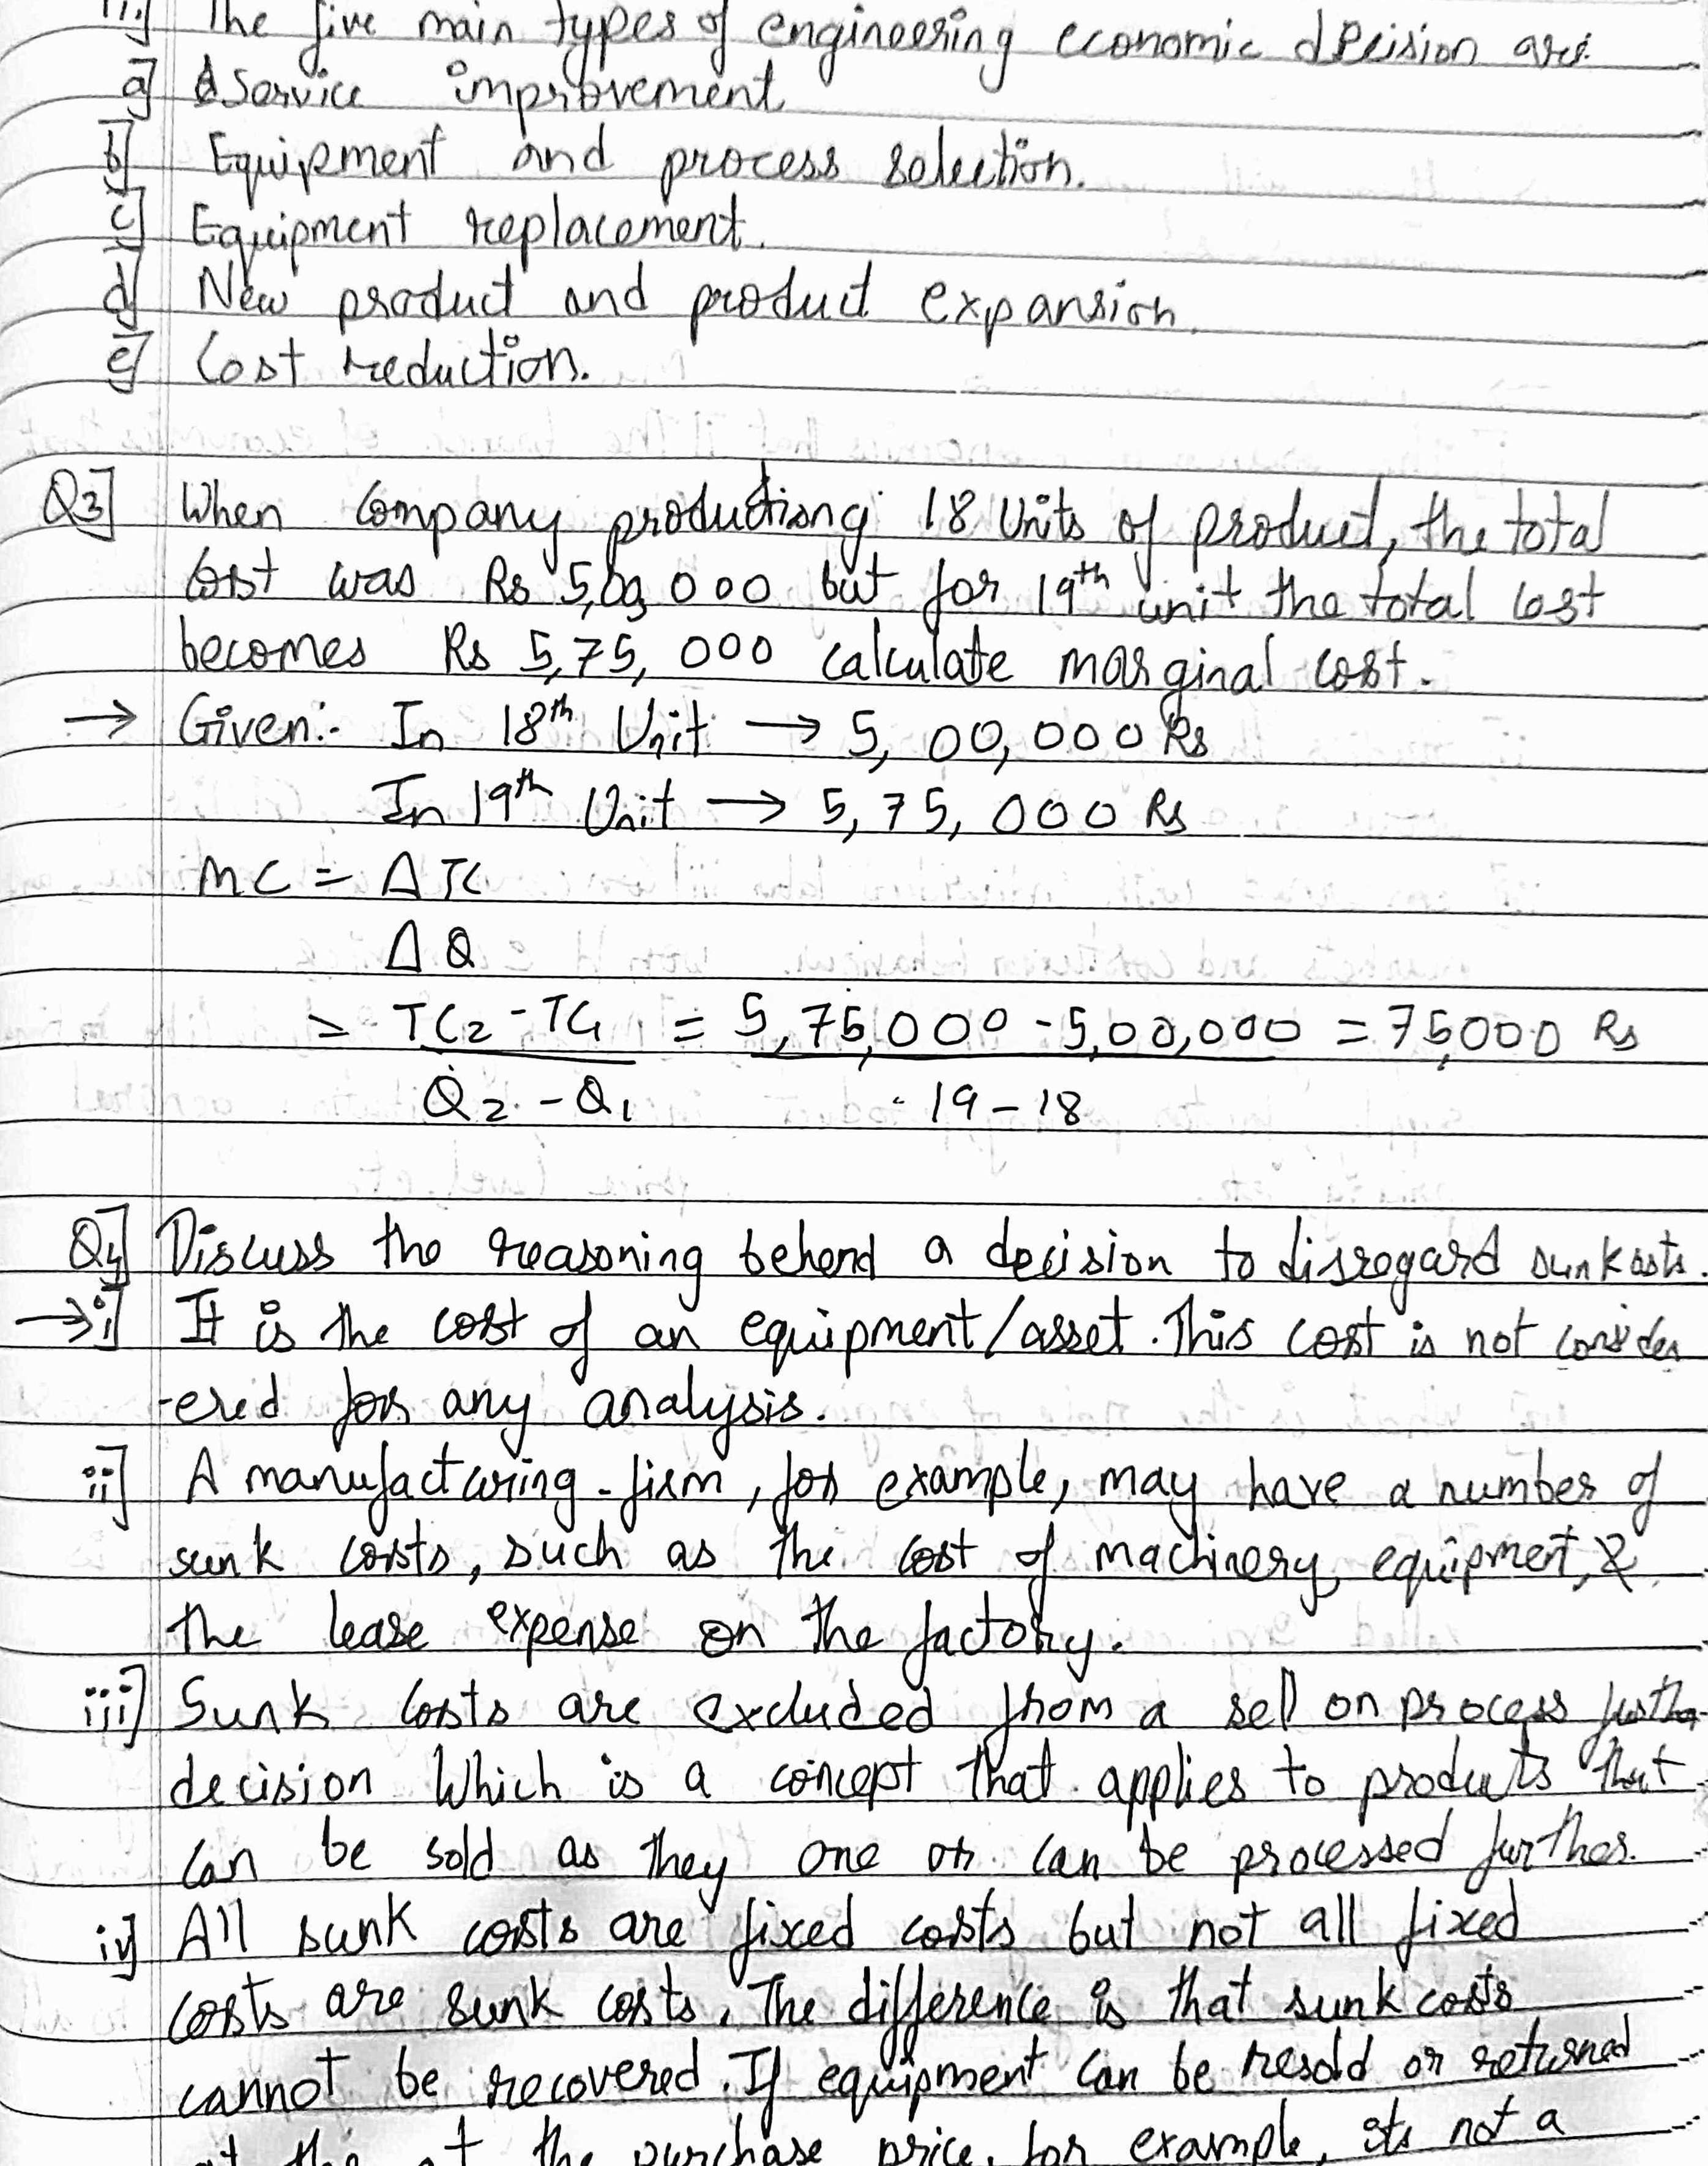 ii] The five main types of engineering economic decision are:
a] Service improvement
b] Equipment and process selection.
c] Equipment replacement.
d] New product and product expansion.
e] Cost reduction.
Q3] When Company productiong 18 Units of product, the total
cost was Rs 5,00,000 but for 19th unit the total cost
becomes Rs 5,75,000 calculate marginal cost.
→ Given:- In 18th Unit → 5,00,000 Rs
In 19th Unit → 5,75,000 Rs
MC = ΔTC
ΔQ
= TC2 - TC1 = 5,75,000 - 5,00,000 = 75,000 Rs
Q2 - Q1 19 - 18
Q4] Discuss the reasoning behend a decision to disregard sunk costs.
→ i] It is the cost of an equipment/asset. This cost is not consider
-ered for any analysis.
ii] A manufacturing firm, for example, may have a number of
sunk costs, such as the cost of machinery, equipment, &
the lease expense on the factory.
iii] Sunk costs are excluded from a sell on process
decision Which is a concept that applies to products that
can be sold as they one or can be processed further.
iv] All sunk costs are fixed costs but not all fixed
costs are sunk costs. The difference is that sunk costs
cannot be recovered. If equipment can be resold or returned
at the the purchase price, for example, its not a